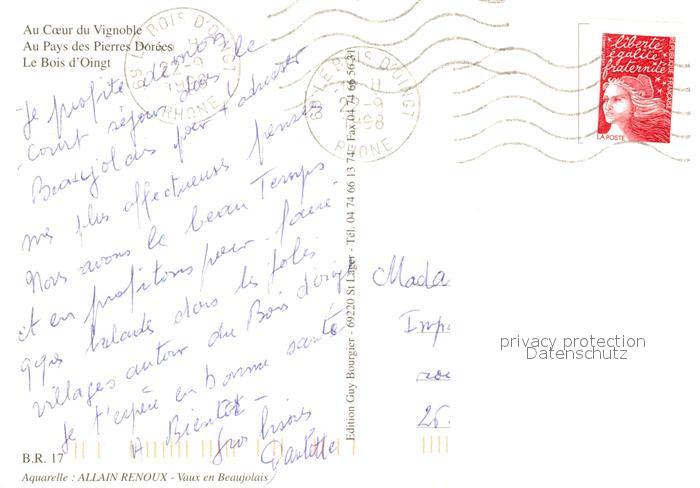 Au Cœur du Vignoble
Au Pays des Pierres Dorées
Le Bois d'Oingt
69 LE BOIS D'OINGT
22-9
1998
RHONE
69 LE BOIS D'OINGT
22-9
1998
RHONE
liberté
égalité
fraternité
LA POSTE
Je profite de mon
court séjour dans le
Beaujolais pour t'adresser
mes plus affectueuses pensées
Nous avons le beau Temps
et en profitons pour faire
qqes balades dans les jolis
villages autour du Bois d'oingt
Je t'espère en bonne santé
A Bientôt
Gros bisous
Paulette
Edition Guy Bourgier - 69220 St Lager - Tél. 04 74 66 13 74 - Fax 04 74 66 56 31
Mada
Imp
26
privacy protection
Datenschutz
B.R. 17
Aquarelle : ALLAIN RENOUX - Vaux en Beaujolais